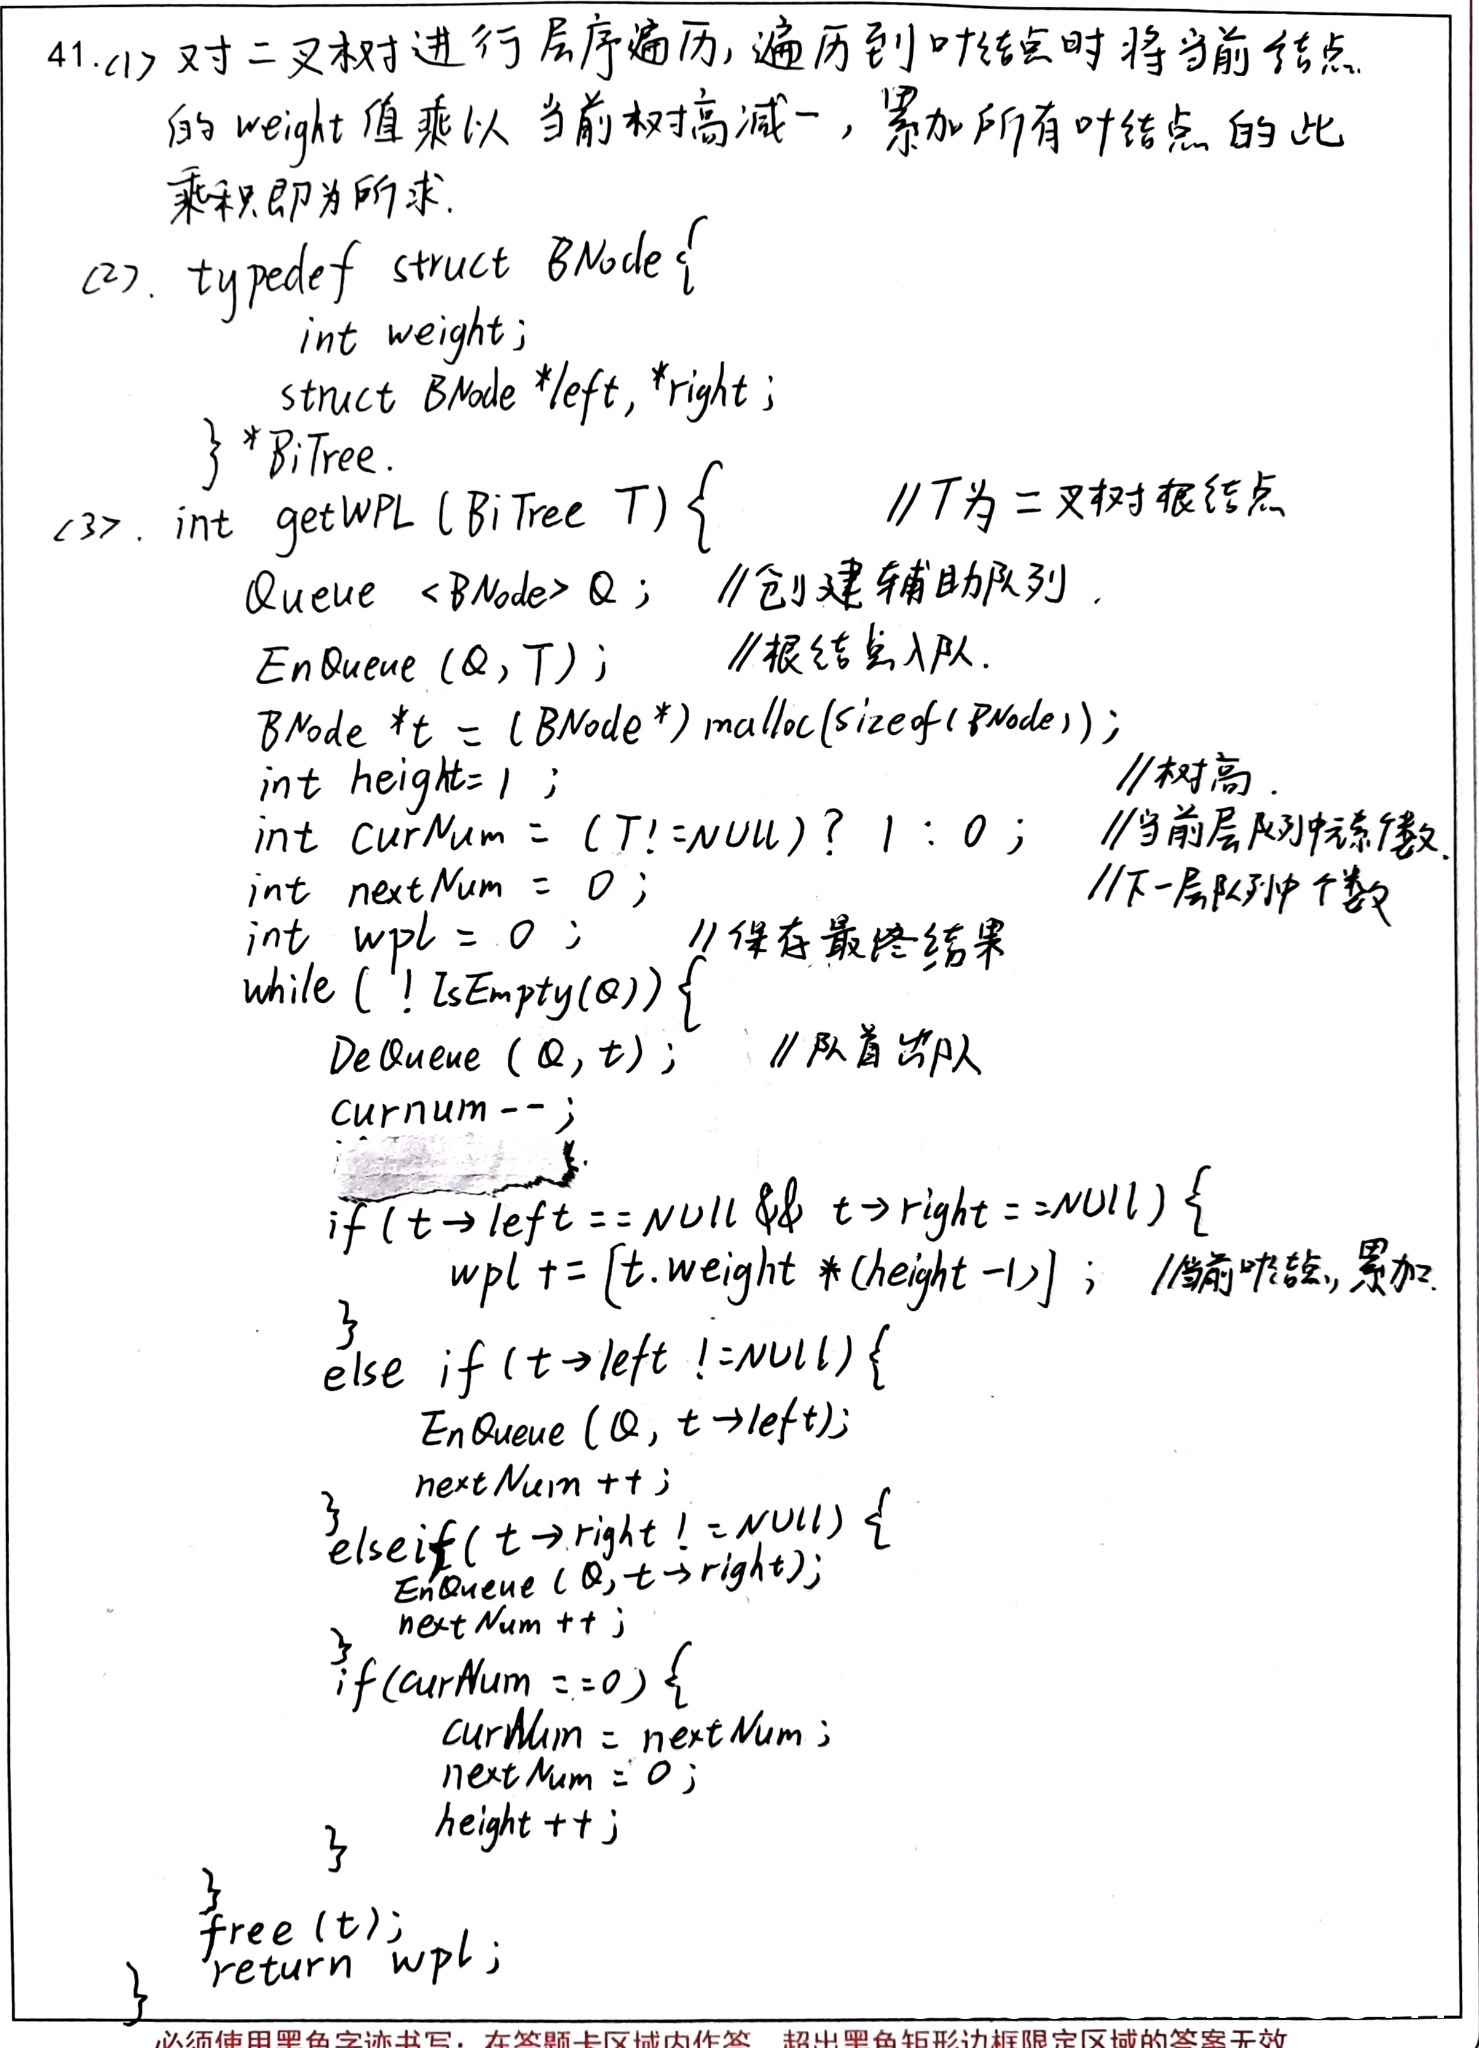 41.(1) 对二叉树进行层序遍历,遍历到叶结点时将当前结点
的weight值乘以当前树高减一,累加所有叶结点的此
乘积即为所求.
(2). typedef struct BNode{
int weight;
struct BNode *left, *right;
} *BiTree.
(3). int getWPL (BiTree T) { //T为二叉树根结点
Queue <BNode> Q; //创建辅助队列.
EnQueue (Q, T); //根结点入队.
BNode *t = (BNode*) malloc(sizeof(BNode));
int height=1; //树高.
int curNum = (T!=NULL)? 1 : 0; //当前层队列中元素个数.
int nextNum = 0; //下一层队列中个数
int wpl = 0; //保存最终结果
while (!IsEmpty(Q)){
DeQueue (Q, t); //队首出队
curnum--;
if(t→left==NULL && t→right==NULL){
wpl += [t.weight *(height-1)]; //当前叶结点,累加.
}
else if (t→left !=NULL){
EnQueue (Q, t→left);
nextNum ++;
}
elseif( t→right !=NULL) {
EnQueue (Q, t→right);
nextNum ++;
}
if(curNum ==0) {
curNum = nextNum;
nextNum = 0;
height ++;
}
}
free (t);
return wpl;
}
必须使用黑色字迹书写;在答题卡区域内作答,超出黑色矩形边框限定区域的答案无效